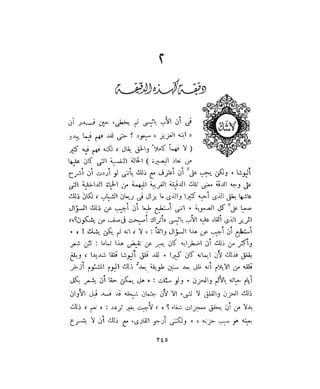 ٢
دقيقة كهذه الدقيقة
لاشك في أن الأب بائيسى لم يخطىء حين قــدر أن
« ابنه العزيز » سيعود ؟ حتى لقد فهم فيما يبدو
( لا فهماً كاملاً والحق يقال ، لكنه فهم فيه كثير
من نفاذ البصيرة ) الحالة النفسية التى كان عليها
أليوشا . ولكن يجب على أن أعترف مع ذلك بأننى لو أردت أن أشرح
على وجه الدقة معنى تلك الدقيقة الغريبة المبهمة من الحياة الداخلية التى
عاشها بطلى الذى أحبه كثيراً والذى ما يزال فى ريعان الشباب ، لكان ذلك
صعباً على كل الصعوبة . اننى أستطيع طبعا أن أجيب عن ذلك السؤال
المرير الذى ألقاه عليه الأب بائيسى «أتراك أصبحت فى صف من يشكون؟»،
أستطيع أن أجيب عن هذا السؤال واثقاً : « لا ، انه لم يكن يشك ! » .
وأكثر من ذلك أن اضطرابه كان يعبر عن نقيض هذا تماما : لئن شعر
بقلق فذلك لأن ايمانه كان كبيرا . لقد قلق أليوشا قلقا شديدا ، وبلغ
قلقه من الايلام أنه ظل بعد سنين طويلة يعد ذلك اليوم المشئوم آلأحر
أيام حياته بالألم والحزن . ولو سئلت : « هل يمكن حقا أن يشعر بكل
ذلك الحزن والقلق لا لشىء الا لأن جثمان شيخه قد فسد قبل الأوان
بدلا من أن يحقق معجزات شفاء ؟ » ، لأجبت بغير تردد : « نعم ، ذلك
بعينه هو سبب حزنه ، » ولكننى أرجو القارىء مع ذلك أن لا يتسرع
٢٤٥